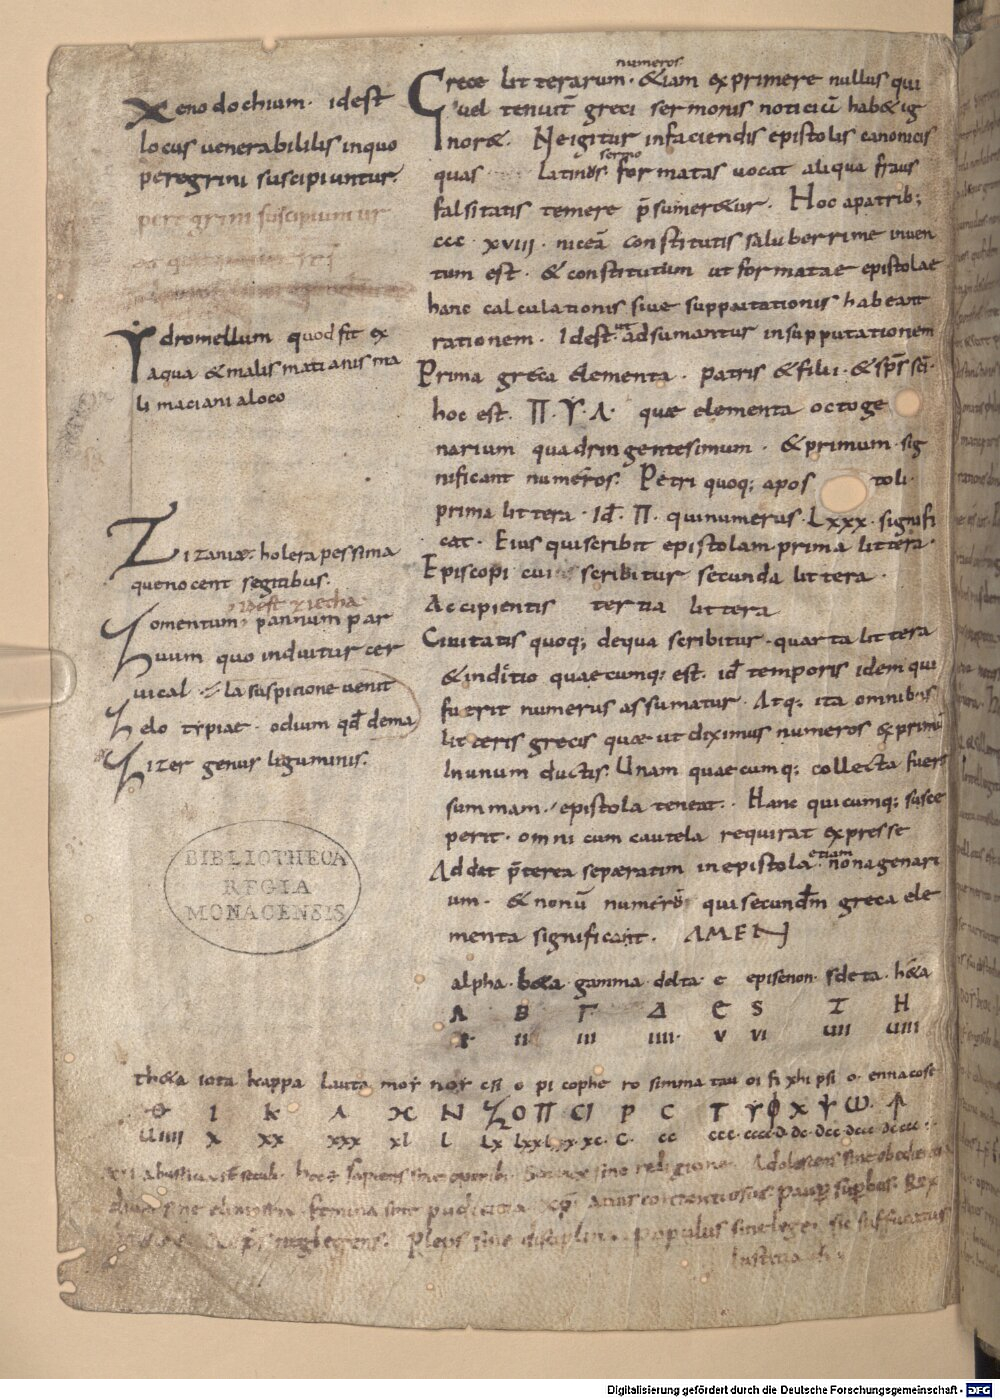 Xenodochium · id est
locus venerabililis in quo
peregrini suscipiuntur.
peregrini suscipiuntur
Ydromellum quod fit ex
aqua & malis matianis ma
li maciani a loco
Zizaniae holera pessima
que nocent segitibus.
idest ziecha
Zomentum · pannum par
vum quo induitur cer
vical la suspicione venit
Zelo typiae · odium qđ dema
Zizer genus liguminis.
BIBLIOTHECA
REGIA
MONACENSIS
numeros
Grece litterarum · &iam exprimere nullus qui
vel tenuit̄ greci sermonis noticiū hab& ig
nor&. Ne igitur in faciendis epistolis canonicis
sermo
quas Latinus formatas vocat aliqua fraus
falsitatis temere p̄sumer&ur. Hoc a patrib;
ccc · xviii · niceā constitutis saluberrime inven
tum est · & constitutum ut formatae epistolae
hanc calculationis sive supputationis habeant
rationem · Id est · ut adsumantur in supputationem
Prima greca elementa · patris & filii · & sp̄s sc̄i ·
hoc est · Π · Υ · Α · quae elementa octoge
narium quadringentesimum · & primum · sig
nificant numeros. Petri quoq; apos toli ·
prima littera · Id · Π · qui numerus · Lxxx · signifi
cat · Eius qui scribit epistolam prima littera ·
Episcopi cui scribitur secunda littera ·
Accipientis tertia littera
Civitatis quoq; de qua scribitur · quarta littera
& inditio quaecumq; est · id temporis idem qui
fuerit numerus assumatur · Atq; ita omnibus
litteris grecis quae ut diximus numeros exprimū
In unum ductis. Unam quaecumq; collecta fuer
summam · epistola teneat · Hanc quicumq; susce
perit · omni cum cautela requirat expresse
Addat p̄terea separatim in epistola etiam nonagenari
um · & nonū numerō qui secundm greca ele
menta significant. AMEN
alpha · b&a · gamma delta · e episenon · sdeta · h&a
Α Β Γ Δ Є S Ζ Η
I II III IIII V VI UIII
th&a iota kappa lauta moy noy csi o pi cophe ro simma tau oi fi xhi psi o · ennacose
Θ Ι Κ Λ Μ Ν Ο Π Ρ C Τ Υ Φ Χ Ψ ω ↑
UIIII X XX XXX XL L LX LXX C · CC CCC · CCCC
sine religione · Adolescens sine obedientia
femina sine pudicitia contentiosus pauper superbus · Rex
neglegens · Plebs sine disciplina · Populus sine lege · sic suffucatur
iusticia
Digitalisierung gefördert durch die Deutsche Forschungsgemeinschaft - DFG